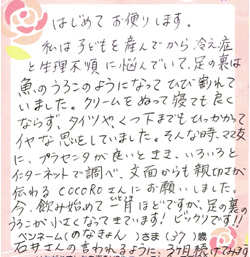 はじめてお便りします。
私は子どもを産んでから冷え症
と生理不順に悩んでいて、足の裏は
魚のうろこのようになってひび割れて
いました。クリームをぬって寝ても良く
ならず、タイツやくつ下までもひっかかって
イヤな思いをしていました。そんな時、ママ友
に、プラセンタが良いときき、いろいろと
インターネットで調べ、文面からも親切さが
伝わるCOCOROさんにお願いしました。
今、飲み始めて一ヶ月ほどですが、足の裏の
うろこが小さくなってきています!ビックリです!!
ペンネーム(のなきょん)さま(37)歳
石井さんの言われるように、3ヶ月続けてみます